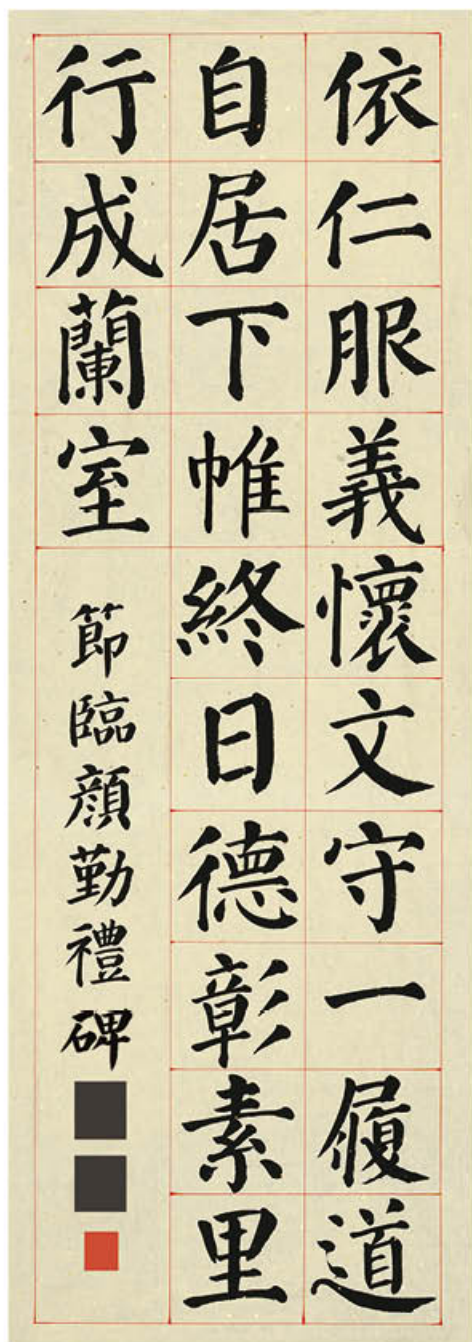 依仁服義懷文守一履道
自居下帷終日德彰素里
行成蘭室
節臨顏勤禮碑